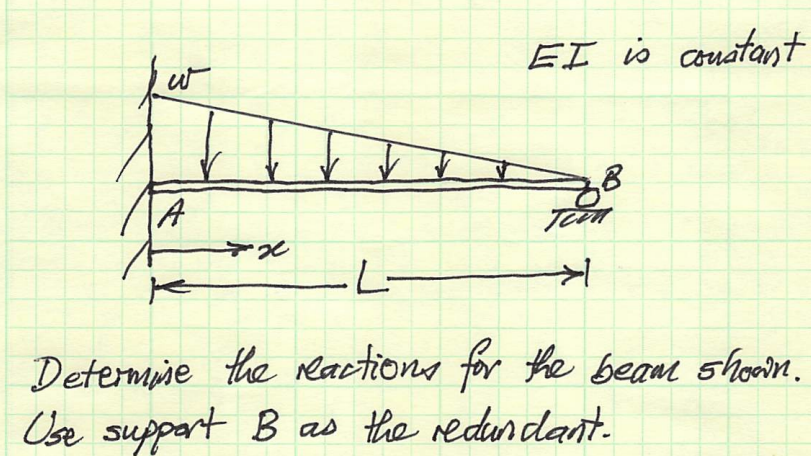 EI is constant
w
B
A
x
L
Determine the reactions for the beam shown.
Use support B as the redundant.